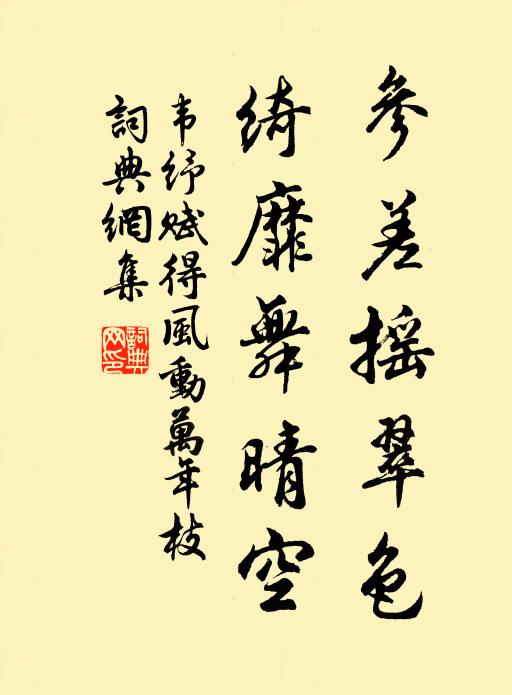 參差摇翠色
綺靡舞晴空
韦纾赋得風動萬年枝
詞典網集
詞典网印